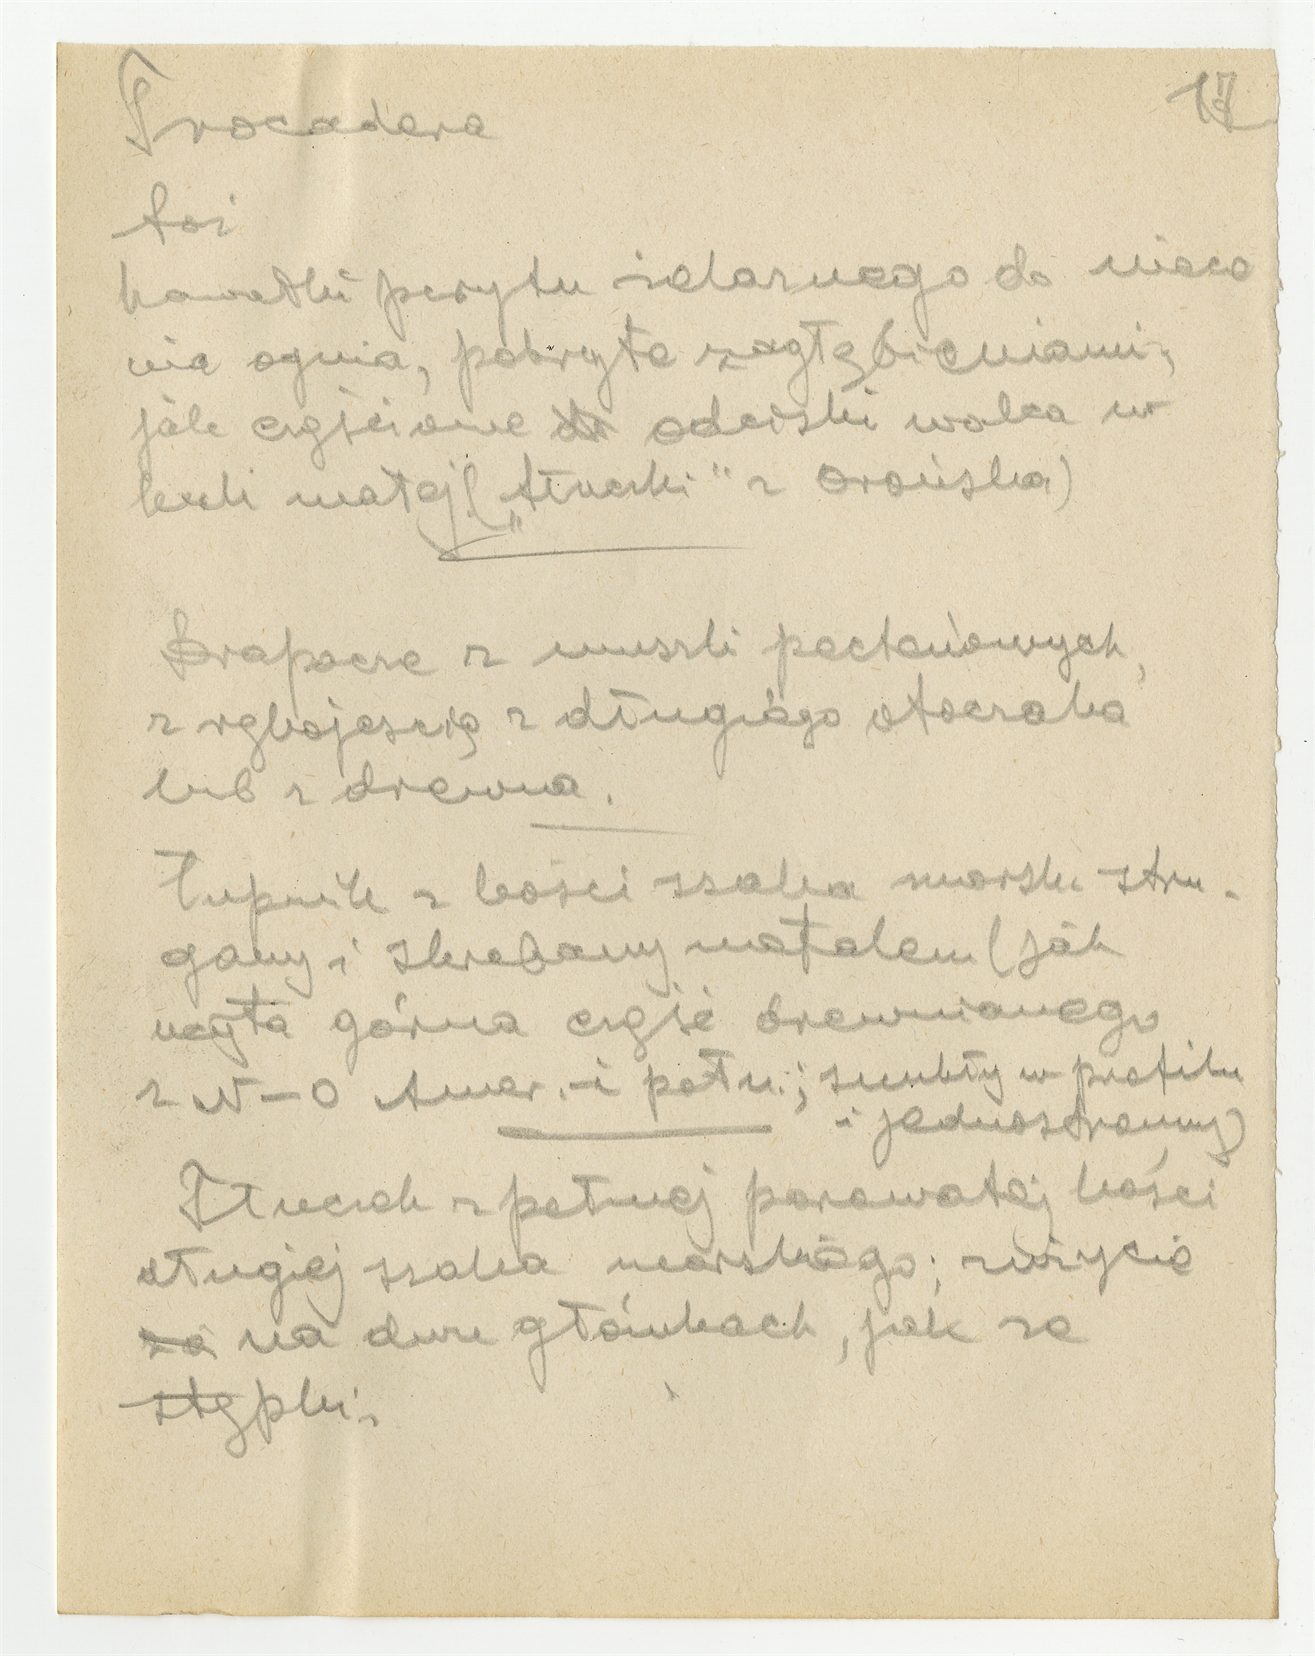 Trocadera
17
toż
kawałki pirytu żelaznego do niece
nia ognia, pokryte zagłębieniami,
jak częściowe odciski walca w
kuli małej („tłuczki" z Orońska)
Drapacze z muszli pectenowych,
z rękojeścią z długiego otoczaka
lub z drewna.
Tupnik z kości ssaka morsk. stru-
gany i skrobany metalem (jak
użyta górna część drewnianego
z N–O Amer. i połu.; smukły w profilu
i jednostronny)
Tłuczek z pełnej porowatej kości
długiej ssaka morskiego; zużycie
na dwu główkach, jak ze
stępki.